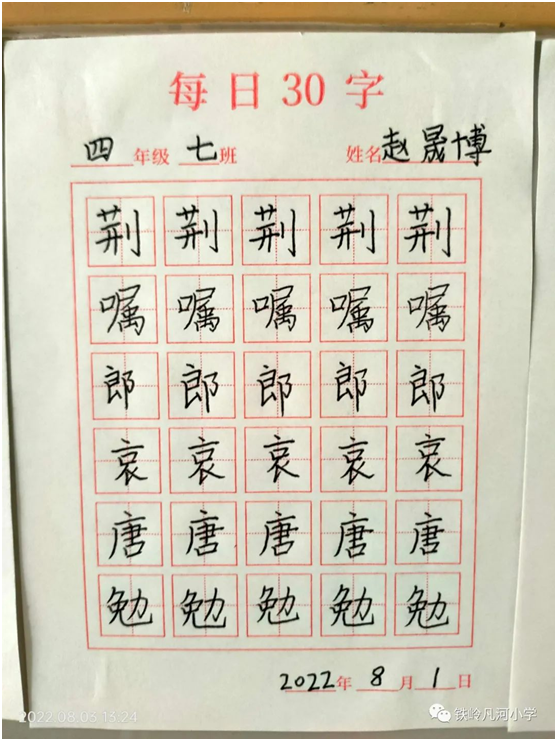 每日30字
四年级 七班 姓名赵晟博
荆荆荆荆荆
嘱嘱嘱嘱嘱
郎郎郎郎郎
哀哀哀哀哀
唐唐唐唐唐
勉勉勉勉勉
2022年 8月 1日
2022.08.03 13:24
铁岭凡河小学